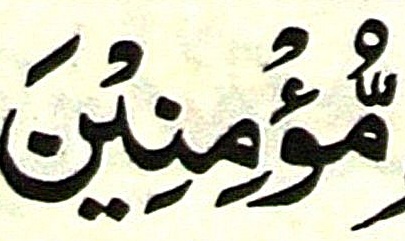 مُّؤْمِنِيْنَ